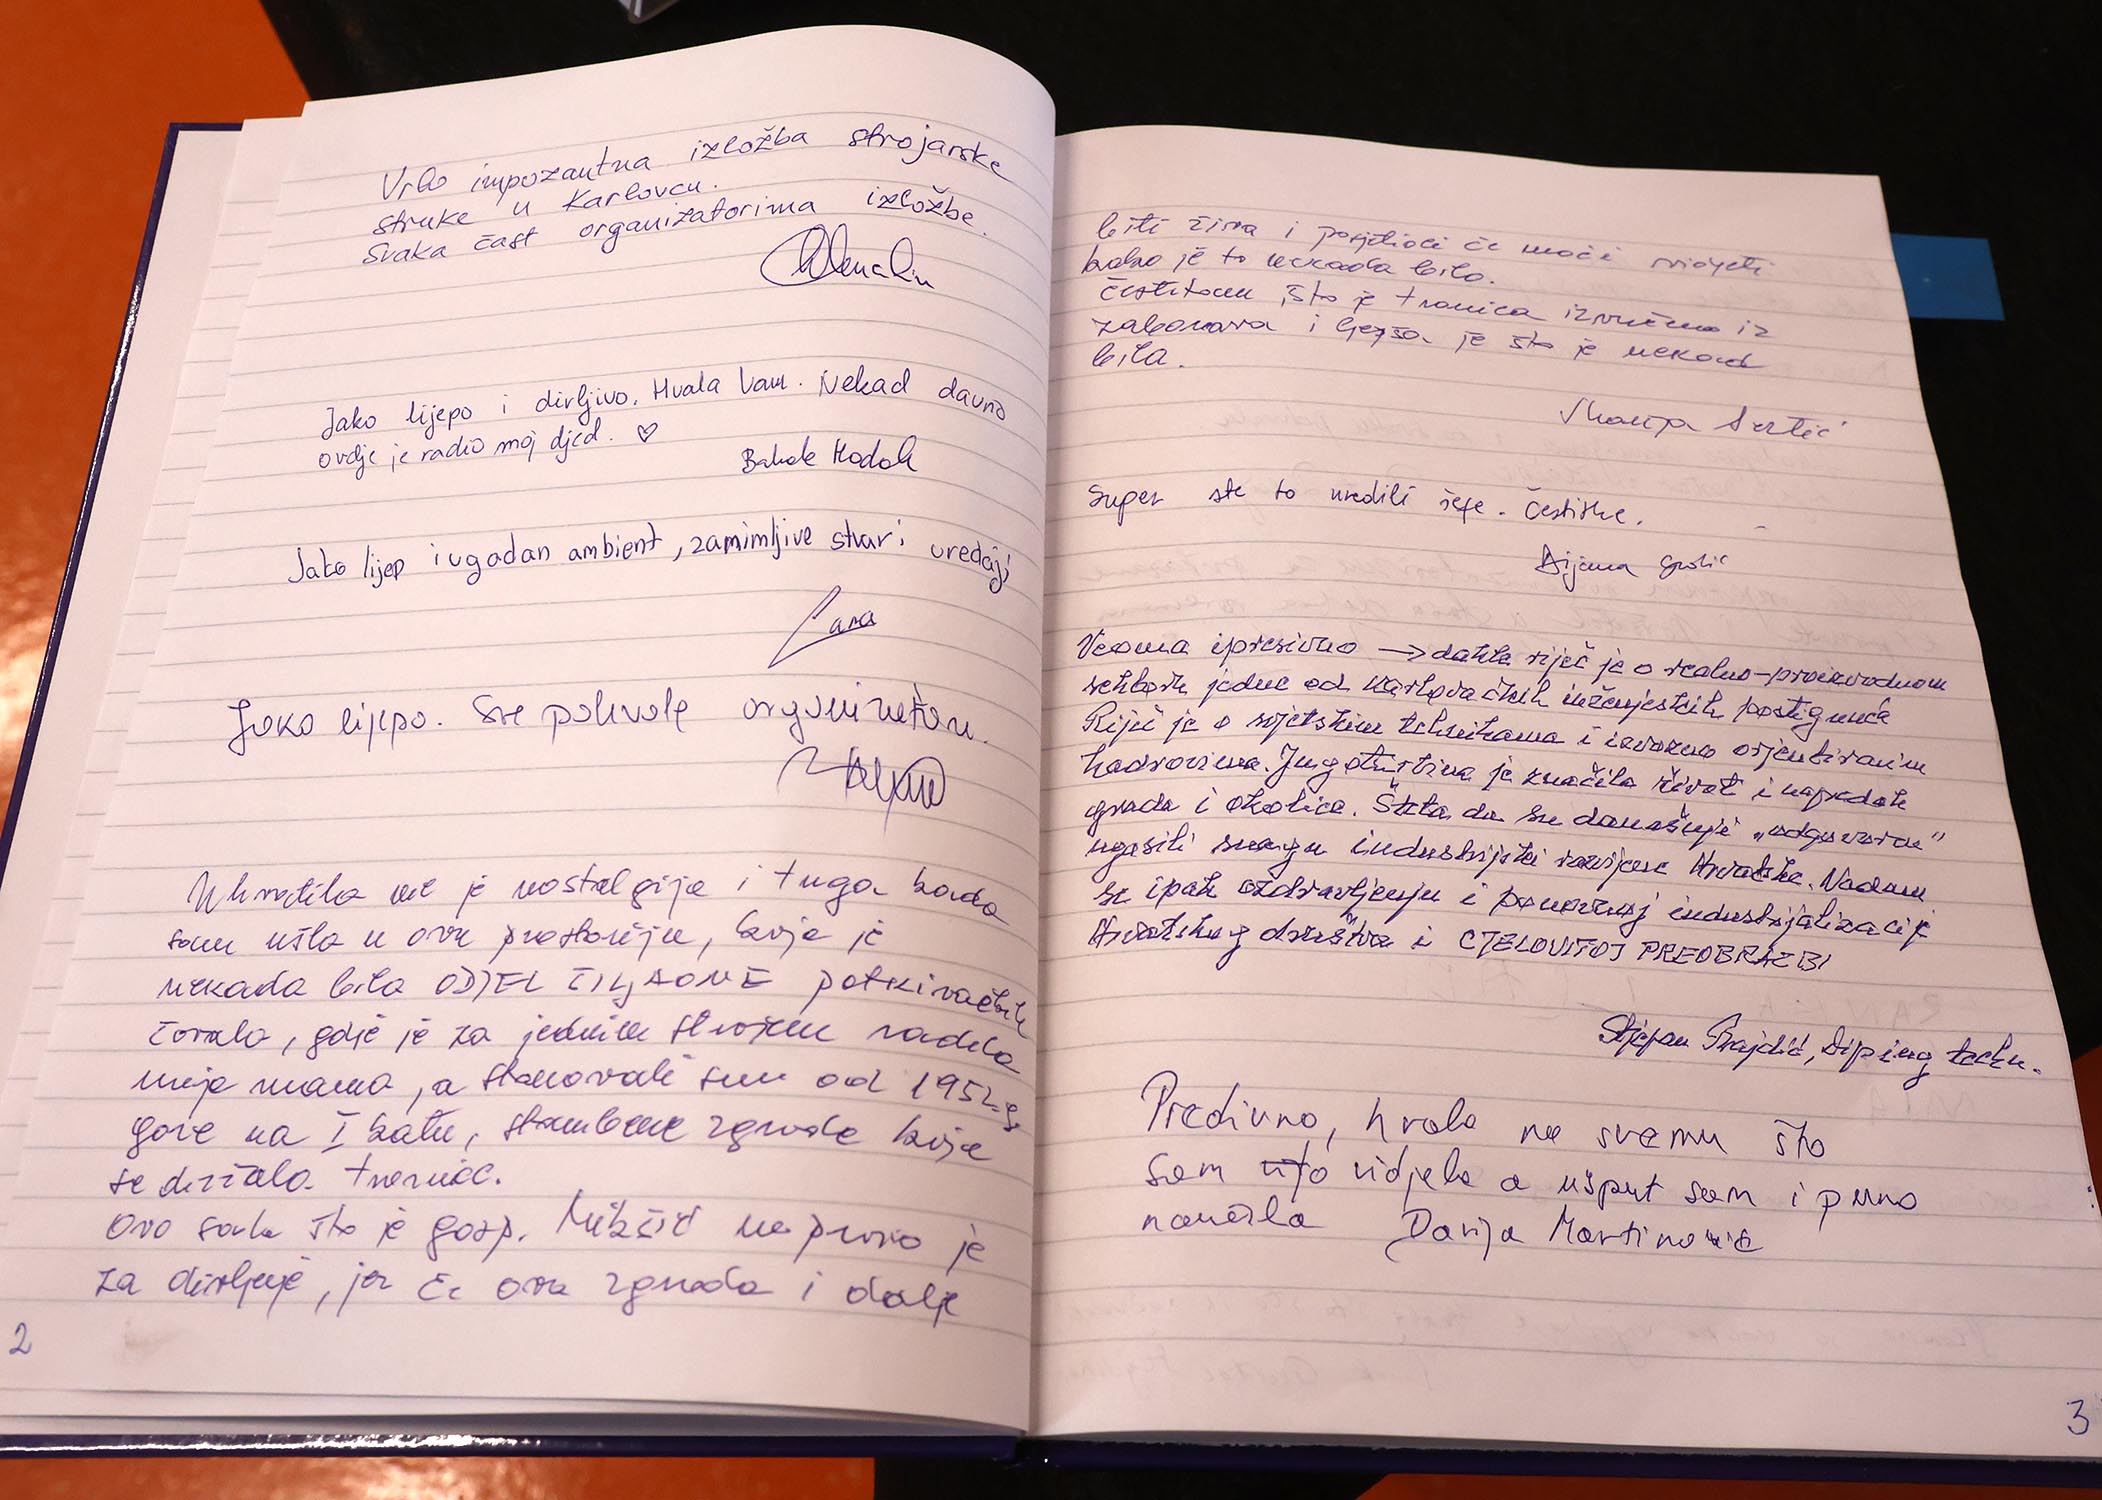 Vrlo impozantna izložba strojarske
struke u Karlovcu.
Svaka čast organizatorima izložbe.
Jako lijepo i dirljivo. Hvala Vam. Nekad davno
ovdje je radio moj djed. ♡
Jako lijep i ugodan ambient, zanimljive stvari uređaji
Lara
Jako lijepo. Sve pohvale organizatoru.
Uhvatila me je nostalgija i tuga kada
sam ušla u ovu prostoriju, koja je
nekada bila ODJEL potkivačkih
čavala, gdje je za jednim strojem radila
moja mama, a stanovali smo od 1952.g.
gore na I katu, stambene zgrade koja
se držala tvornice.
Ovo sada što je gosp. napravio je
za divljenje, jer će ova zgrada i dalje
2
biti živa i posjetioci će moći vidjeti
kako je to nekada bilo.
Čestitam što je tvornica izvučena iz
zaborava i ljepša je što je nekad
bila.
Marija
Super ste to uredili šefe. Čestitke.
Dijana
Veoma ipresivno → dakle riječ je o realno-proizvodnom
sektoru jedne od karlovačkih inženjerskih postignuća
Riječ je o svjetskim tehnikama i izvozno orjentiranim
kadrovima. Jugoturbina je značila život i napredak
grada i okolice. Šteta da su današnji „odgovorni"
ugasili snagu industrijski razvijene Hrvatske. Nadam
se ipak ozdravljenju i ponovnoj industrijalizaciji
Hrvatskog društva i CJELOVITOJ PREOBRAZBI
Stjepan
Predivno, hvala na svemu što
sam vidjela a usput sam i puno
naučila Darija Martinović
3